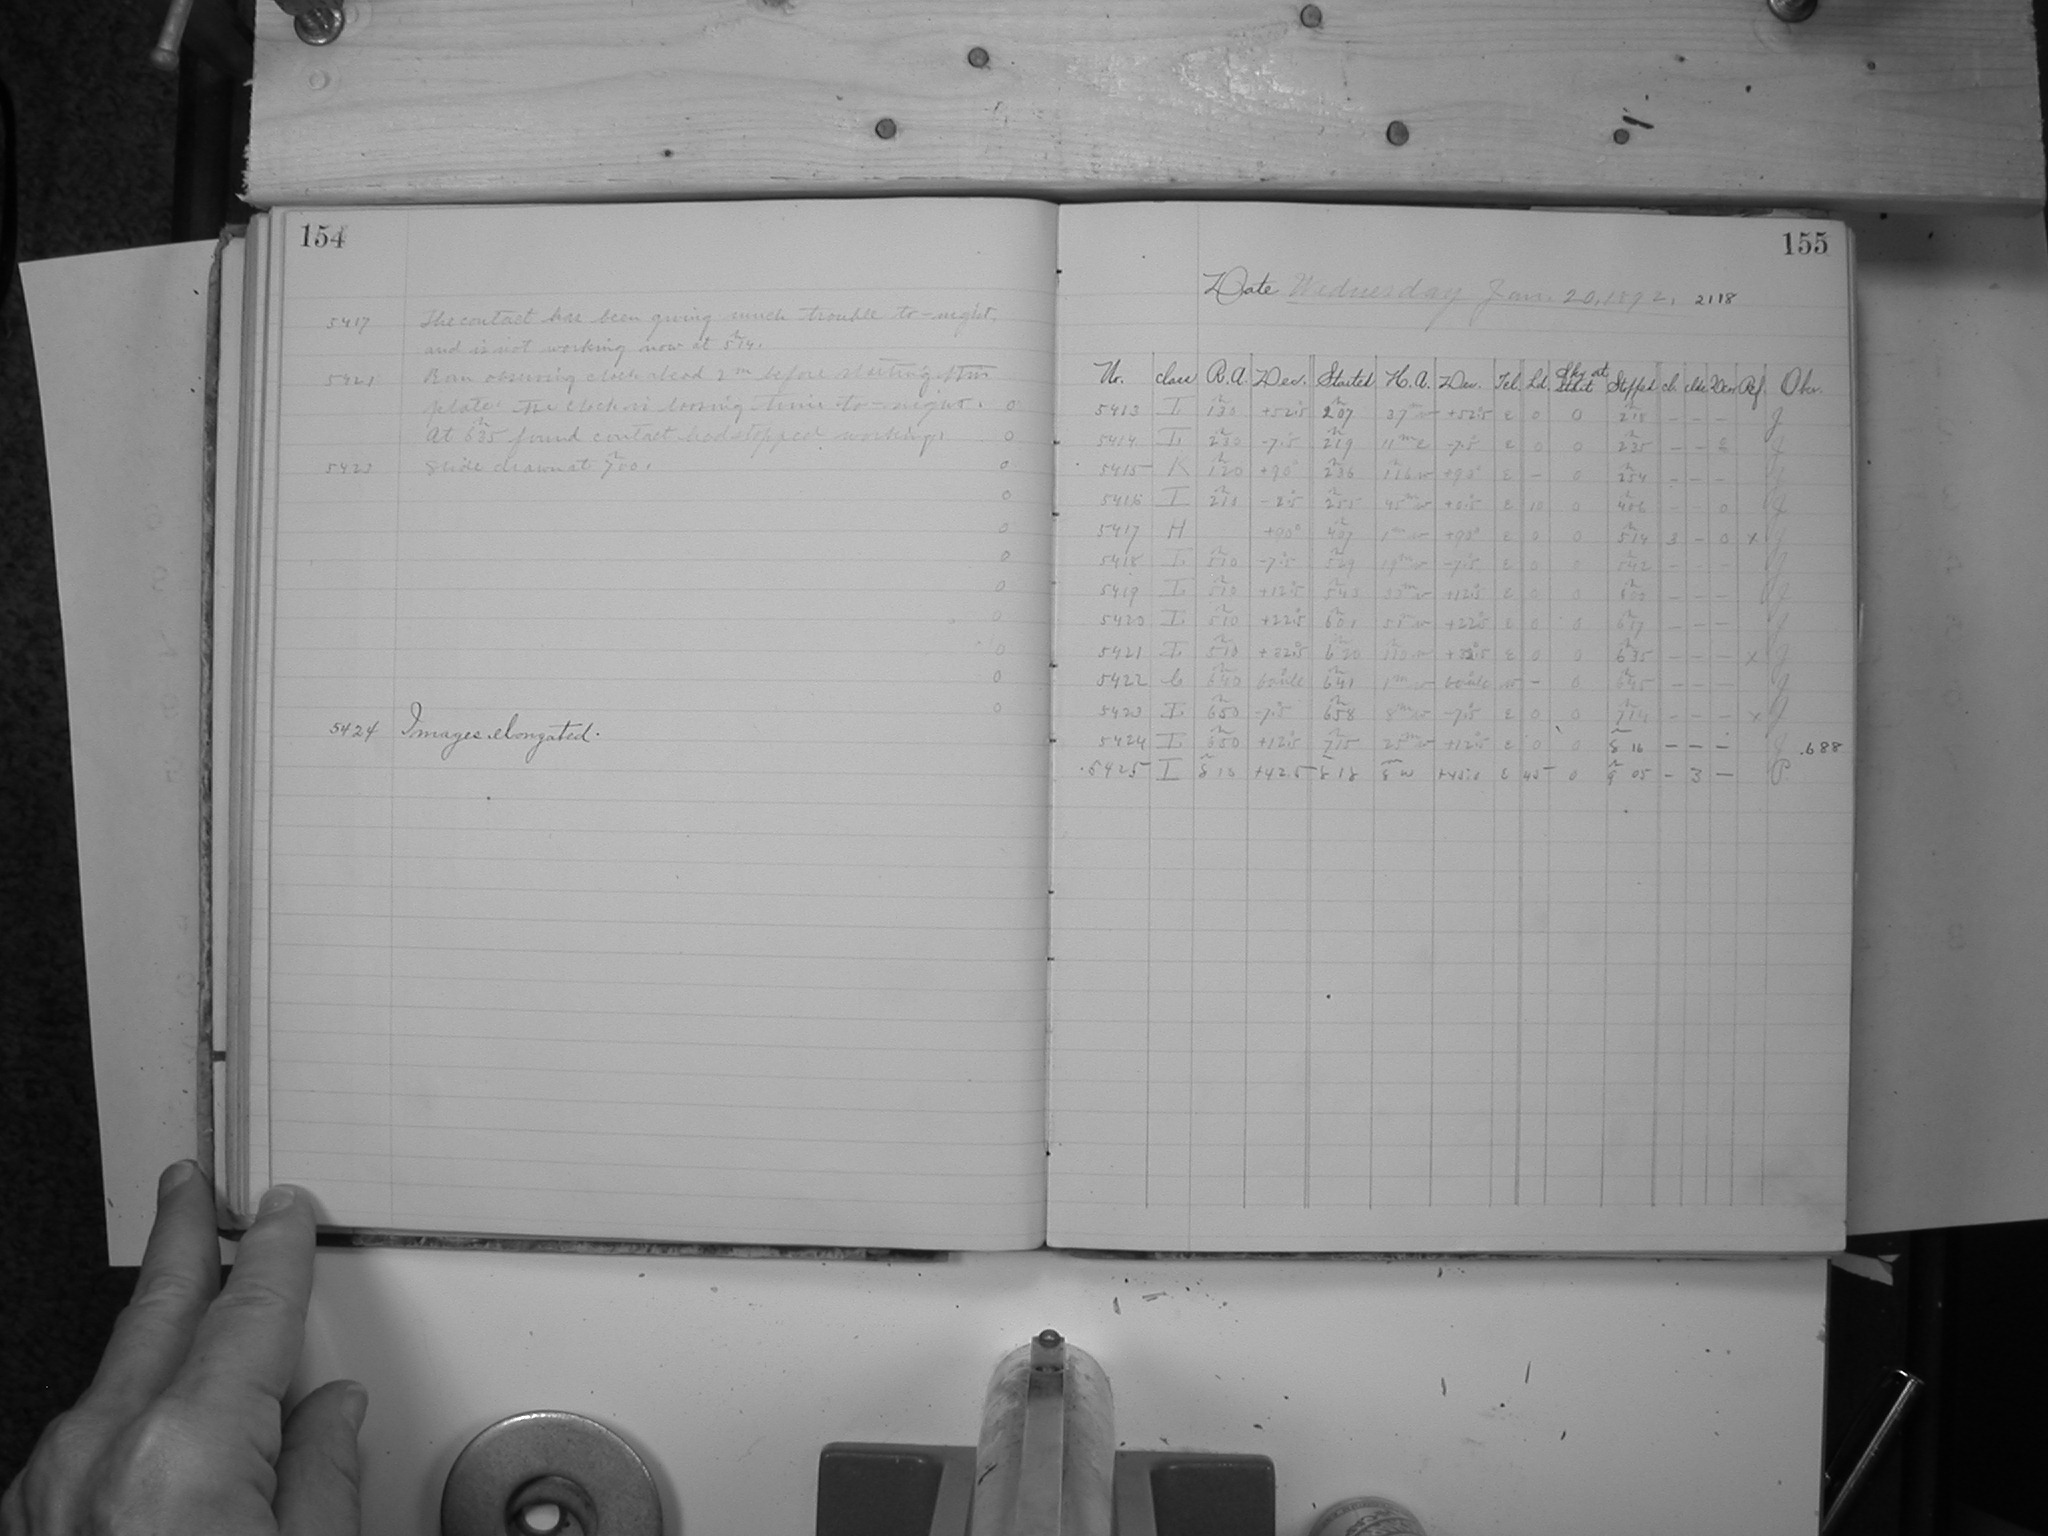 154
5417 The contact has been giving much trouble to-night,
and is not working now at 5h14.
5421 observing clock ahead 2m before starting this
plate. The clock is loosing time to-night. 0
At 6h35 found contact had stopped working. 0
5423 Slide drawn at 7h00. 0
0
0
0
0
0
0
0
0
5424 Images elongated.
155
Date Wednesday Jan. 20, 1892. 2118
No. class R.A. Dec. Started H.A. Dec. Tel. Ld. Sky at start Stopped ch. clds Dew Ref. Obs.
5413 I. 1h30 +52.5 2h07 37m w +52.5 E 0 0 2h18 - - - J
5414 I. 2h30 -7.5 2h19 11m E -7.5 E 0 0 2h35 - - J
5415 K 1h20 +90° 2h36 1h16 w +90° E - 0 2h54 - - - J
5416 I 2h10 2h55 45m w E 10 0 4h06 - - 0 J
5417 H +90° 4h07 1m w +90° E 0 0 5h14 3 - 0 x J
5418 I. 5h10 -7.5 5h29 19m w -7.5 E 0 0 5h42 - - - J
5419 I. 5h10 +12.5 5h43 33m w +12.5 E 0 0 6h00 - - - J
5420 I. 5h10 +22.5 6h01 51m w +22.5 E 0 0 6h17 - - - J
5421 I. 5h10 +32.5 6h20 1h10 w +32.5 E 0 0 6h35 - - - x J
5422 C 6h40 6h41 1m w w - 0 6h45 - - - J
5423 I. 6h50 -7.5 6h58 8m w -7.5 E 0 0 7h14 - - - x J
5424 I. 6h50 +12.5 7h15 25m w +12.5 E 0 0 8h16 - - - J .688
5425 I 8h10 +42.5 8h18 8m w +45.0 E 45 0 9h05 - 3 - P